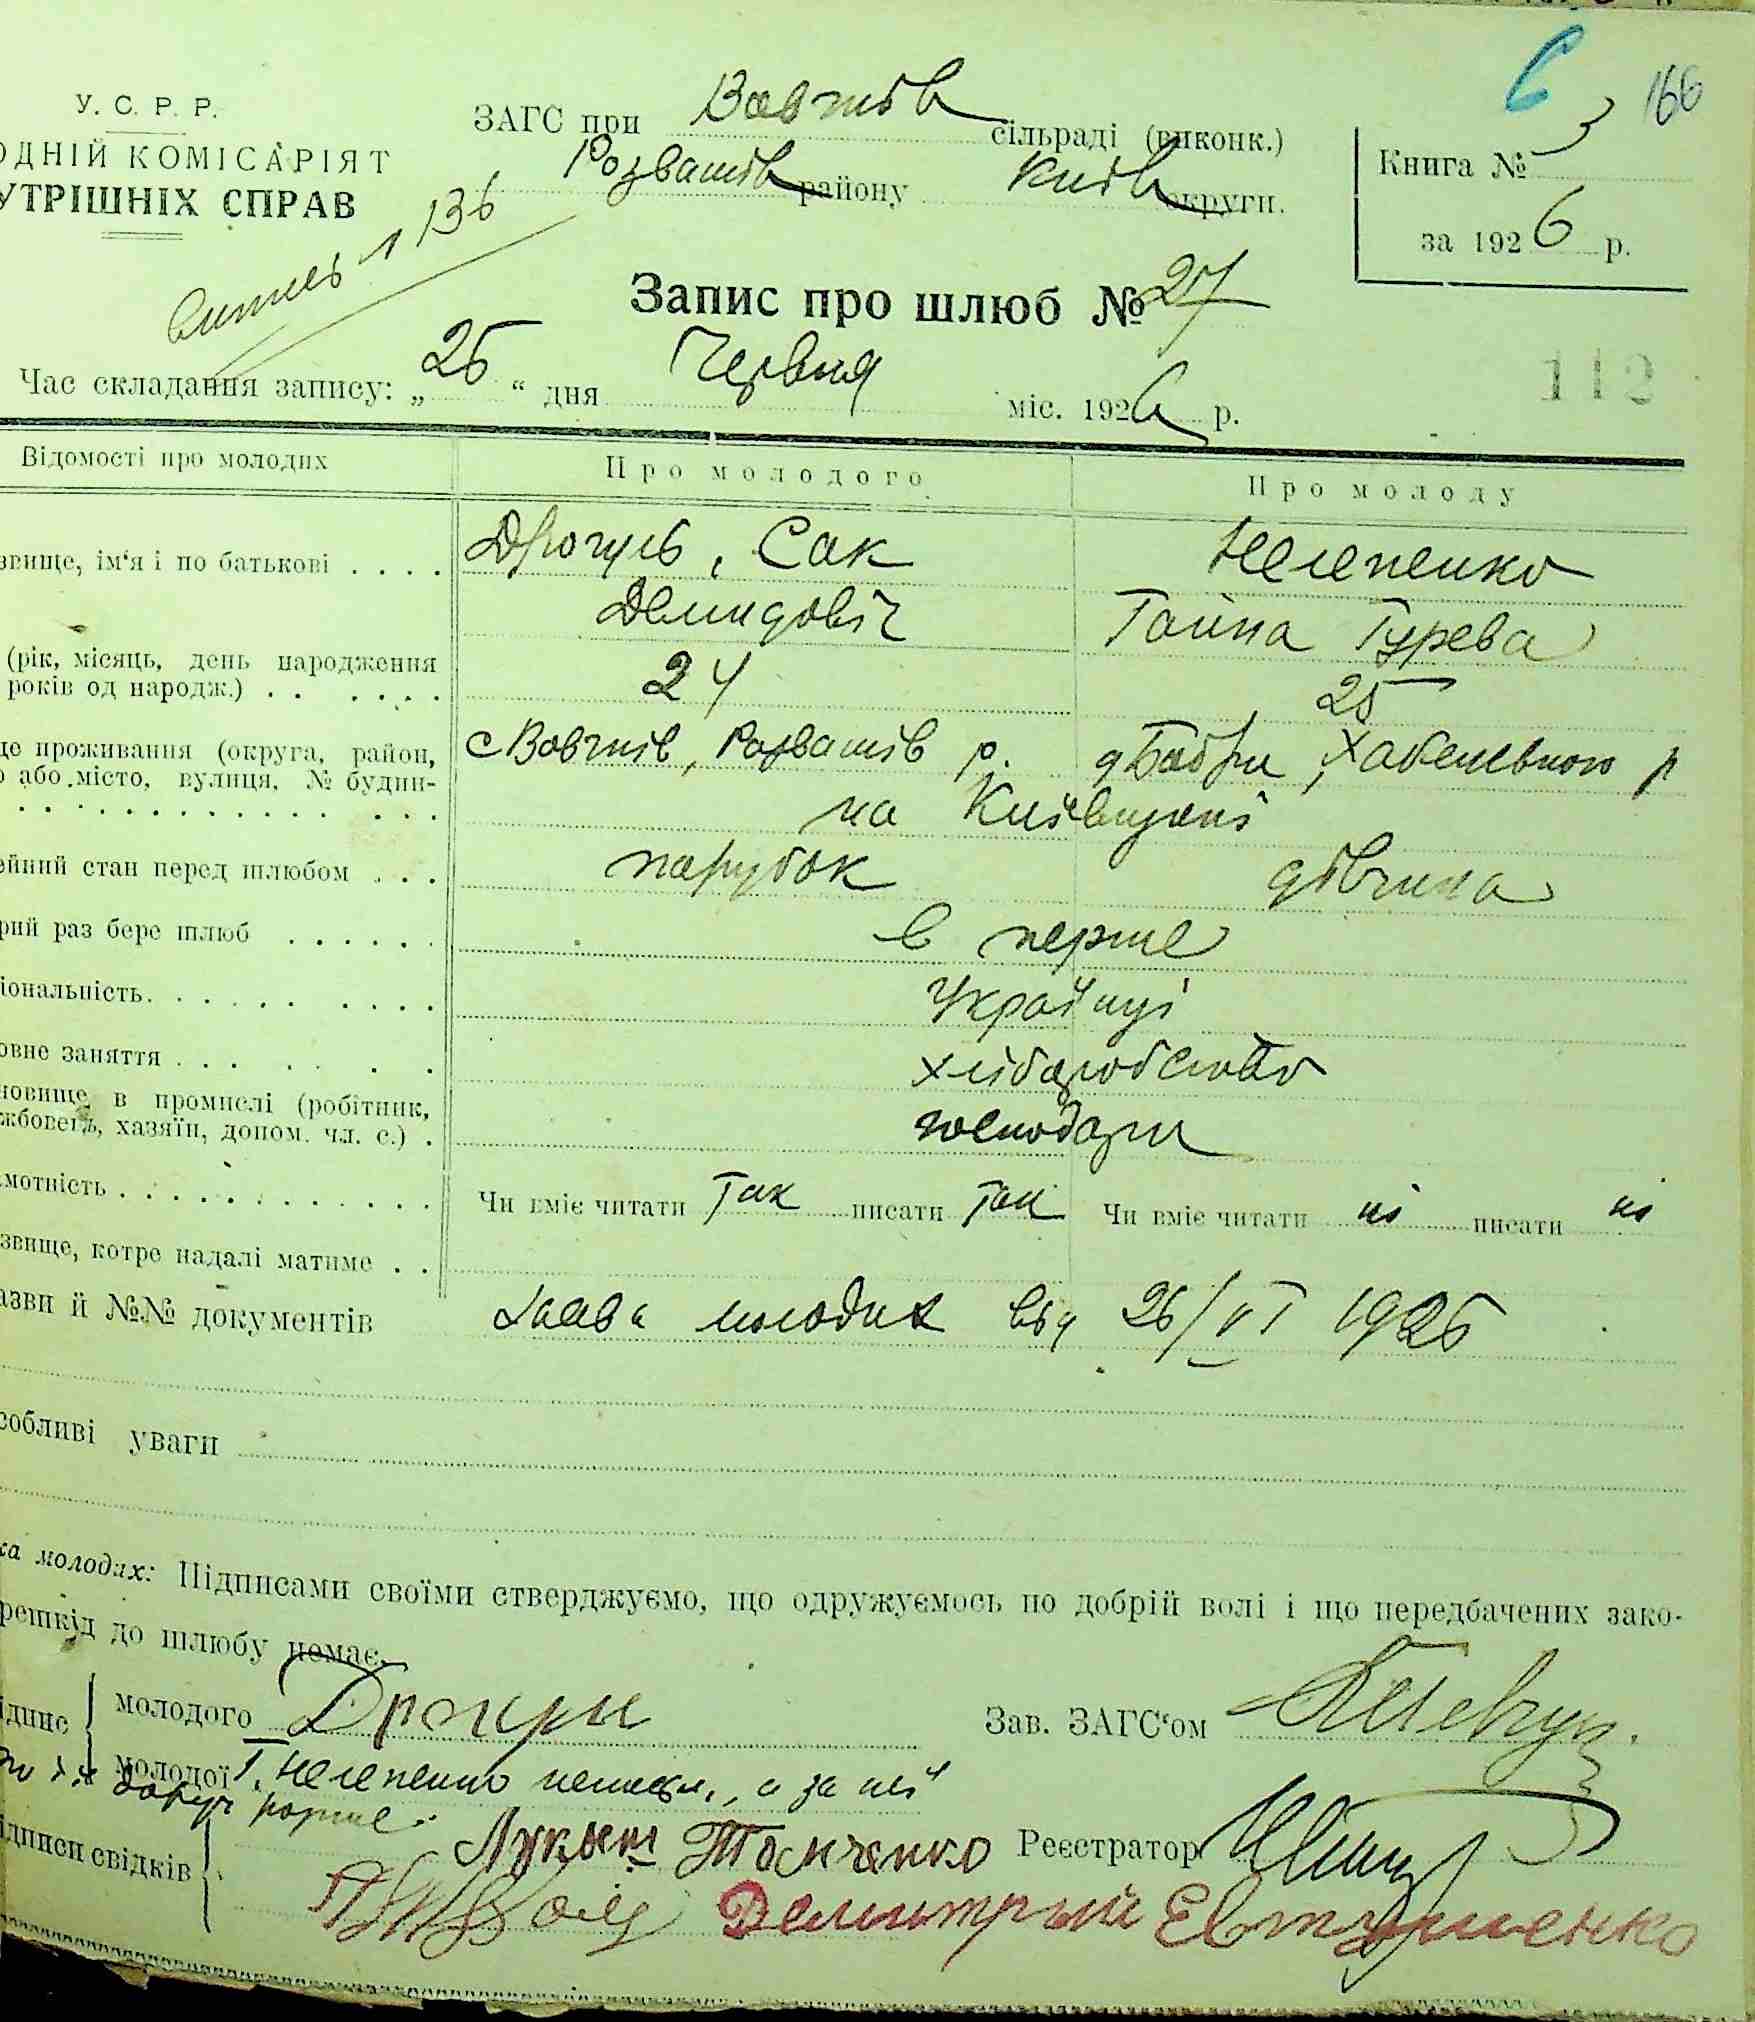 6 166
У. С. Р. Р.
ОДНІЙ КОМІСАРІЯТ
УТРІШНІХ СПРАВ
ЗАГС при Вовчків сільраді (виконк.)
Розважів району Київ округи.
Книга № 3
за 1926 р.
витяг 136
Запис про шлюб № 27
112
Час складання запису: „25“ дня Червня міс. 1926 р.
Відомості про молодих Про молодого Про молоду
звище, ім'я і по батькові . . . . Дрогуль, Сак Нелепенко
Демидовіч Ганна Гурева
(рік, місяць, день народження
років од народж.) . . . . . . 24 25
це проживання (округа, район, с Вовчків, Розважів р. д Бобри, Хабенського р
о або місто, вулиця, № будин-
на Київщині
ейний стан перед шлюбом . . . парубок дівчина
рий раз бере шлюб . . . . . . в перше
іональність. . . . . . . . . Українці
овне заняття . . . . . . Хліборобство
новище в промислі (робітник,
жбовець, хазяїн, допом. чл. с.) . господари
мотність . . . . . . . . . . . . Чи вміє читати так писати так Чи вміє читати ні писати ні
звище, котре надалі матиме . .
азви й №№ документів Заява молодих від 26/VI 1926
собливі уваги
ка молодих: Підписами своїми стверджуємо, що одружуємось по добрій волі і що передбачених зако-
решкід до шлюбу немає.
ідпис молодого Зав. ЗАГС'ом
молодої Г. Нелепенко неписм., а за неї
ідписи свідків Лукаш Томченко Реєстратор
Демитрий Евтушенко